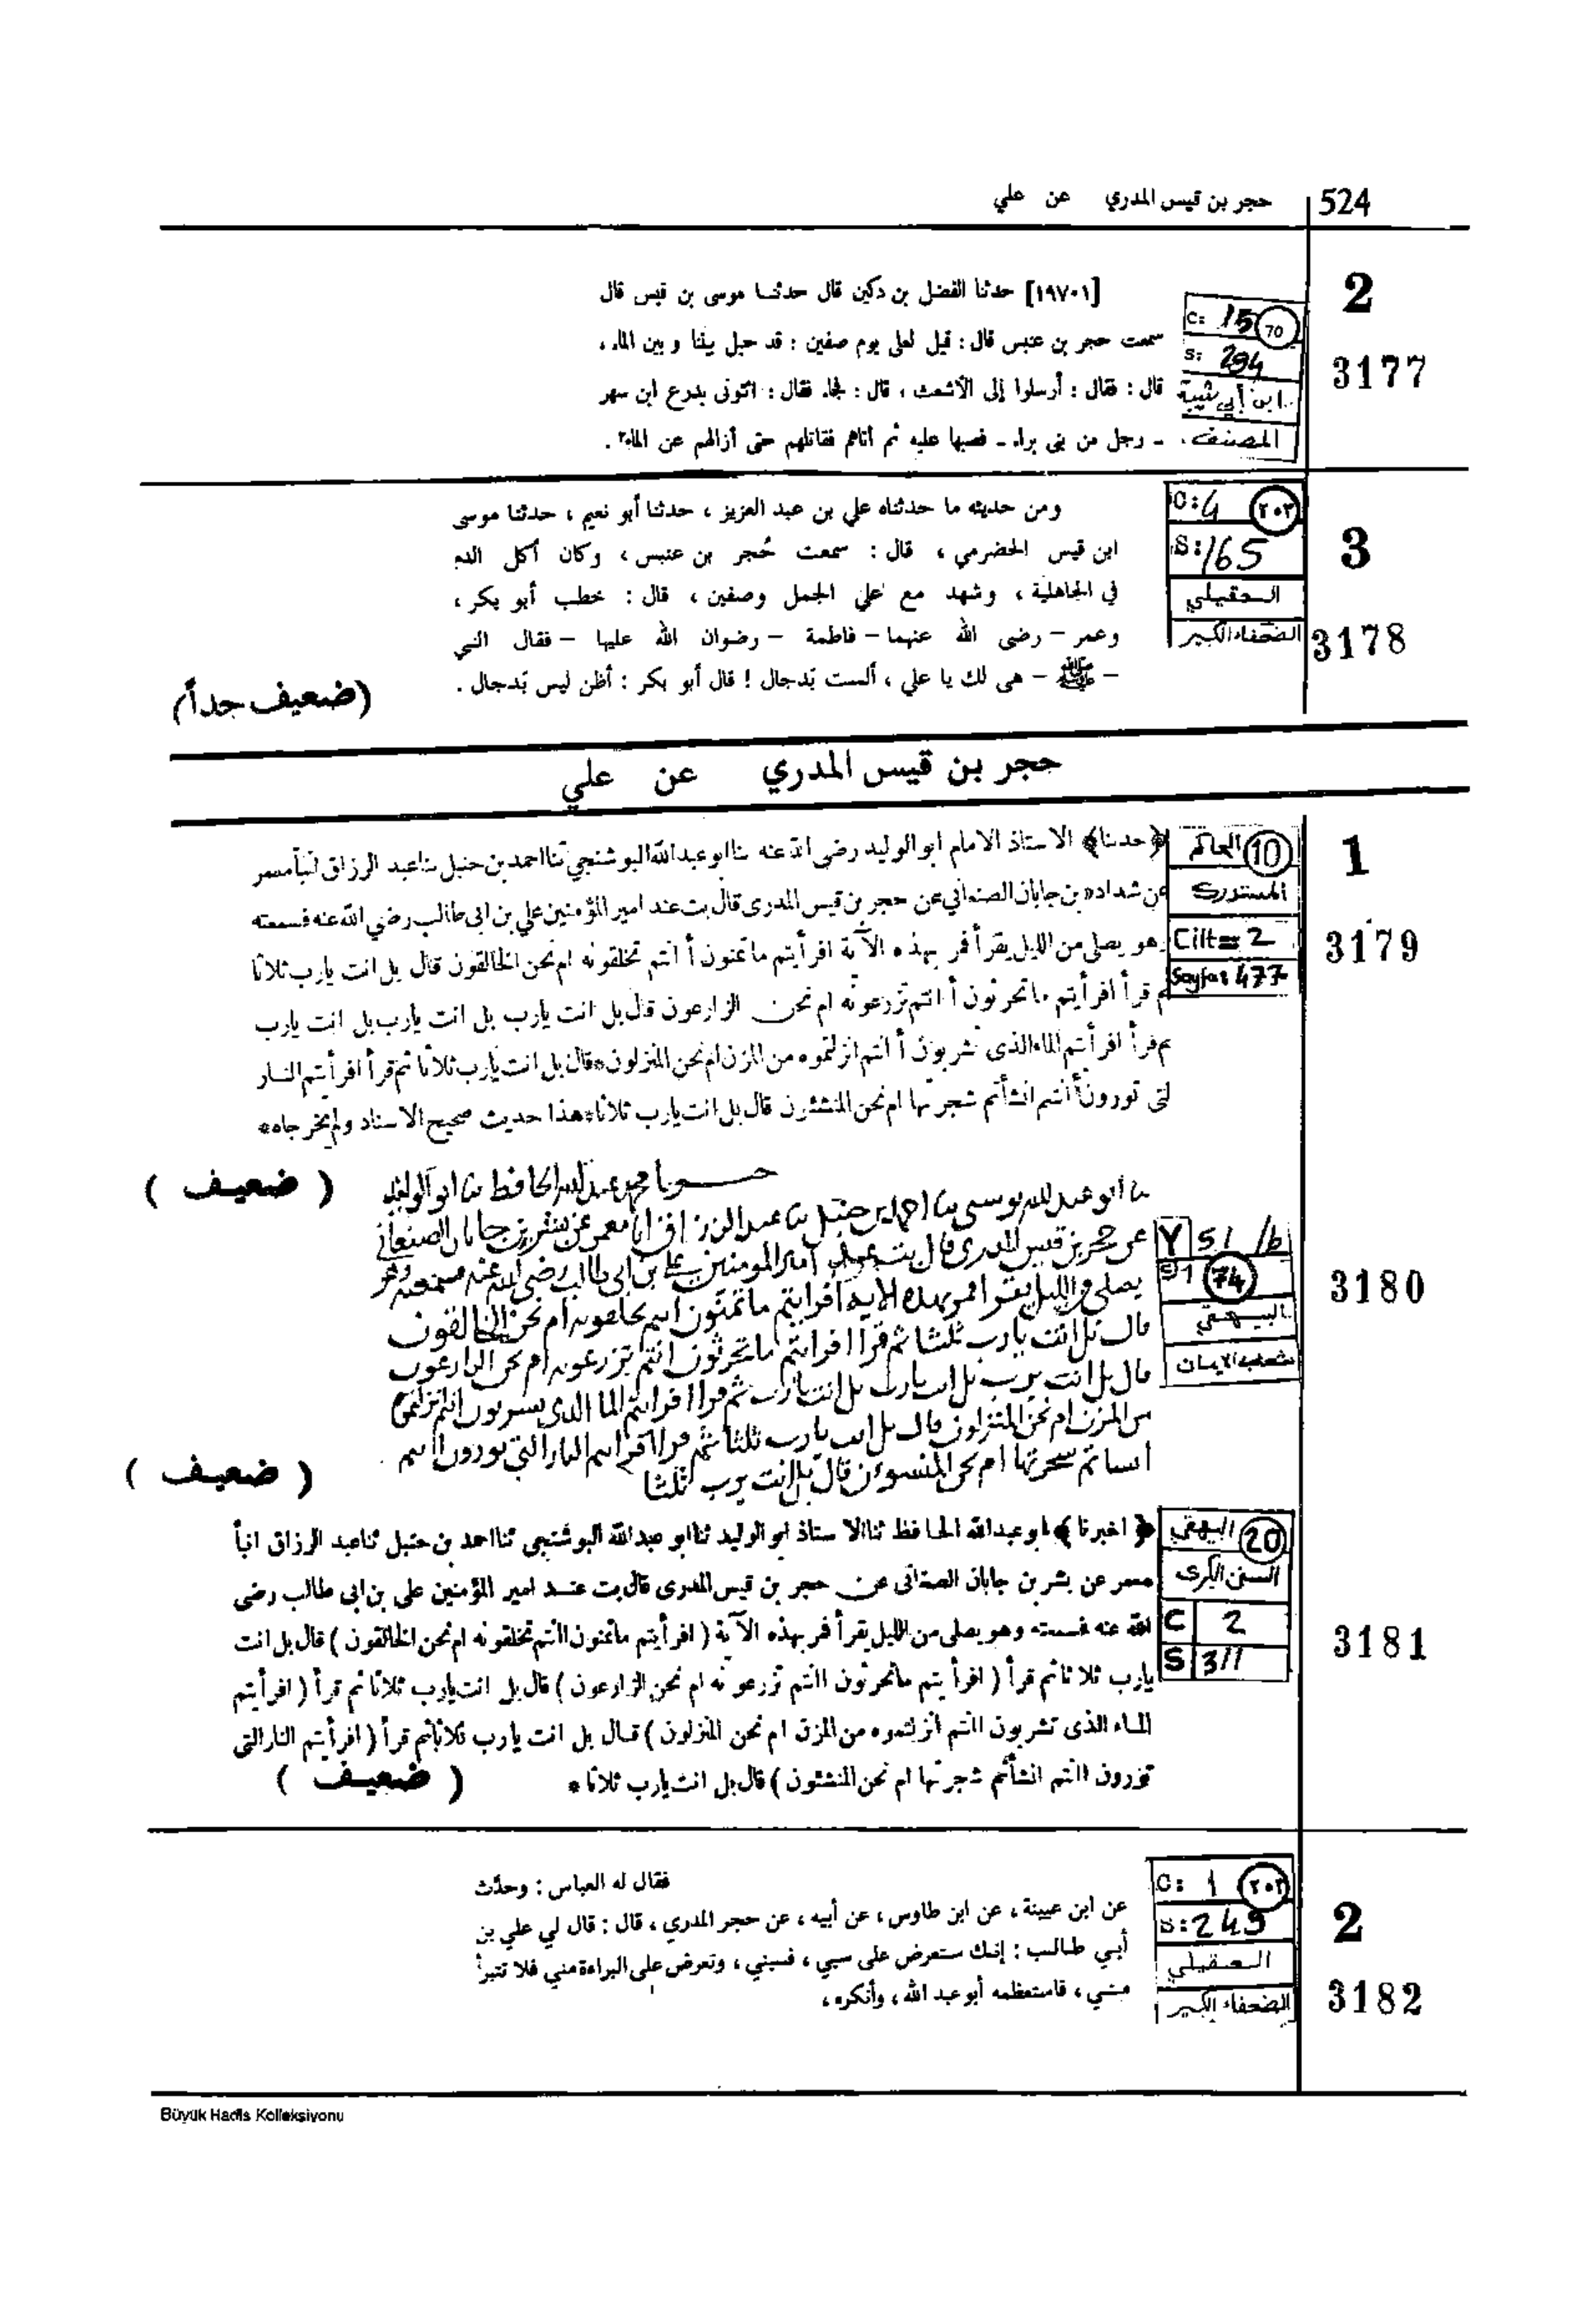 524
حجر بن قيس المدري عن علي
2
3177
C: 15 70
S: 294
ابن أبي شيبة
المصنف
[١٩٧٠١] حدثنا الفضل بن دكين قال حدثنا موسى بن قيس قال
سمعت حجر بن عنبس قال : قيل لعلى يوم صفين : قد حيل بيننا و بين الماء ،
قال : فقال : أرسلوا إلى الأشعث ، قال : فجاء فقال : ائتونى بدرع ابن سهر
ـ رجل من بنى براء ـ فصبها عليه ثم أتاهم فقاتلهم حتى أزالهم عن الماء٢ .
3
3178
C: 4 ٢٠٢
S: 165
العقيلي
الضعفاء الكبير
ومن حديثه ما حدثناه علي بن عبد العزيز ، حدثنا أبو نعيم ، حدثنا موسى
ابن قيس الحضرمي ، قال : سمعت حُجر بن عنبس ، وكان أكل الدم
في الجاهلية ، وشهد مع علي الجمل وصفين ، قال : خطب أبو بكر ،
وعمر – رضى الله عنهما – فاطمة – رضوان الله عليها – فقال النبي
– ﷺ – هى لك يا علي ، ألست بدجال ! قال أبو بكر : أظن ليس بدجال .
(ضعيف جداً)
حجر بن قيس المدري عن علي
1
3179
الحاكم 10
المستدرك
Cilt= 2
Sayfa: 477
﴿حدثنا﴾ الاستاذ الامام ابو الوليد رضى الله عنه ثنا ابو عبدالله البوشنجي ثنا احمد بن حنبل ثنا عبد الرزاق انبأ معمر
عن شداد بن جابان الصنعاني عن حجر بن قيس المدرى قال بت عند امير المؤمنين علي بن ابى طالب رضي الله عنه فسمعته
وهو يصلى من الليل يقرأ فمر بهذه الآية افرأيتم ما تمنون أ انتم تخلقونه ام نحن الخالقون قال بل انت يارب ثلاثا
ثم قرأ افرأيتم ما تحرثون أ انتم تزرعونه ام نحن الزارعون قال بل انت يارب بل انت يارب بل انت يارب
ثم قرأ افرأيتم الماء الذى تشربون أ انتم انزلتموه من المزن ام نحن المنزلون قال بل انت يارب ثلاثا ثم قرأ افرأيتم النار
التى تورون أ أنتم انشأتم شجرتها ام نحن المنشئون قال بل انت يارب ثلاثا * هذا حديث صحيح الاسناد ولم يخرجاه *
( ضعيف )
3180
Y 51/b
S1 74
البيهقي
شعب الايمان
محمد عبد الله الحافظ ابو الوليد
عن حجر بن قيس المدرى قال بت عند امير المومنين علي بن ابى طالب رضي الله عنه فسمعته وهو
يصلى من الليل يقرا فمر بهذه الايه افرايتم ما تمنون انتم تخلقونه ام نحن الخالقون
قال بل انت يارب ثلثا ثم قرا افرايتم ما تحرثون انتم تزرعونه ام نحن الزارعون
قال بل انت يرب بل انت يارب بل انت يارب ثم قرا افرايتم الما الذى تشربون انتم انزلتموه
من المزن ام نحن المنزلون قال بل انت يارب ثلثا ثم قرا افرايتم النار التي تورون اانتم
انشاتم شجرتها ام نحن المنشؤن قال بل انت يرب ثلثا
( ضعيف )
3181
البيهقي 20
السنن الكبرى
C 2
S 311
﴿ اخبرنا ﴾ ابو عبدالله الحافظ ثنا الاستاذ ابو الوليد ثنا ابو عبدالله البوشنجى ثنا احمد بن حنبل ثنا عبد الرزاق انبأ
معمر عن بشر بن جابان الصنعانى عن حجر بن قيس المدرى قال بت عند امير المؤمنين على بن ابى طالب رضى
الله عنه فسمعته وهو يصلى من الليل يقرأ فمر بهذه الآية ( افرأيتم ما تمنون اانتم تخلقونه ام نحن الخالقون ) قال بل انت
يارب ثلاثا ثم قرأ ( افرأيتم ما تحرثون اانتم تزرعونه ام نحن الزارعون ) قال بل انت يارب ثلاثا ثم قرأ ( افرأيتم
الماء الذى تشربون اانتم انزلتموه من المزن ام نحن المنزلون ) قال بل انت يارب ثلاثا ثم قرأ ( افرأيتم النار التى
تورون اانتم انشأتم شجرتها ام نحن المنشئون ) قال بل انت يارب ثلاثا *
( ضعيف )
2
3182
C: 1 ٢٠٢
S: 249
العقيلي
الضعفاء الكبير
فقال له العباس : وحدّث
عن ابن عيينة ، عن ابن طاوس ، عن أبيه ، عن حجر المدري ، قال : قال لي علي بن
أبي طالب : إنك ستعرض على سبي ، فسبني ، وتعرض على البراءة مني فلا تتبرأ
مني ، فاستعظمه أبو عبد الله ، وأنكره ،
Büyük Hadis Kolleksiyonu